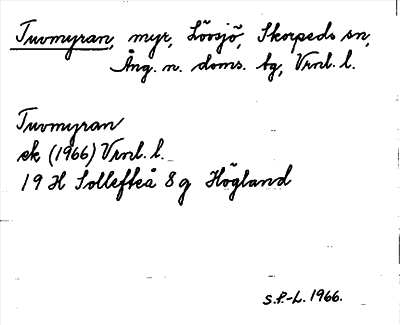 Tuvmyran, myr, Lövsjö, Skorpeds sn,
Ång. n. doms. bg, Vrnl. l.
Tuvmyran
ek (1966) Vrnl. l.
19 H Sollefteå 8 g Högland
S.P.-L. 1966.